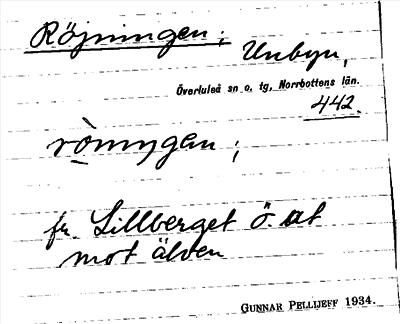 Röjningen;
Unbyn,
Överluleå sn o. tg, Norrbottens län.
442.
fr. Lillberget ö. ut
mot älven
GUNNAR PELLIJEFF 1934.